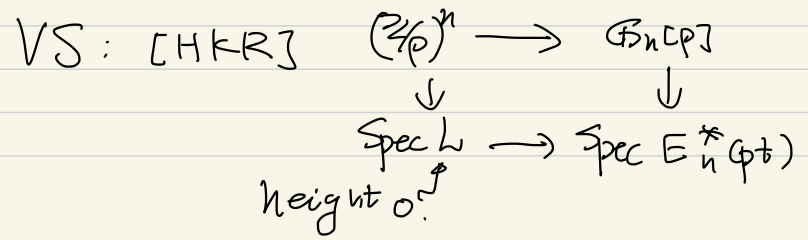 VS: [HKR] (ℤ/p)^n → 𝔾_n[p]
↓ ↓
Spec L → Spec E_n^*(pt)
height 0?